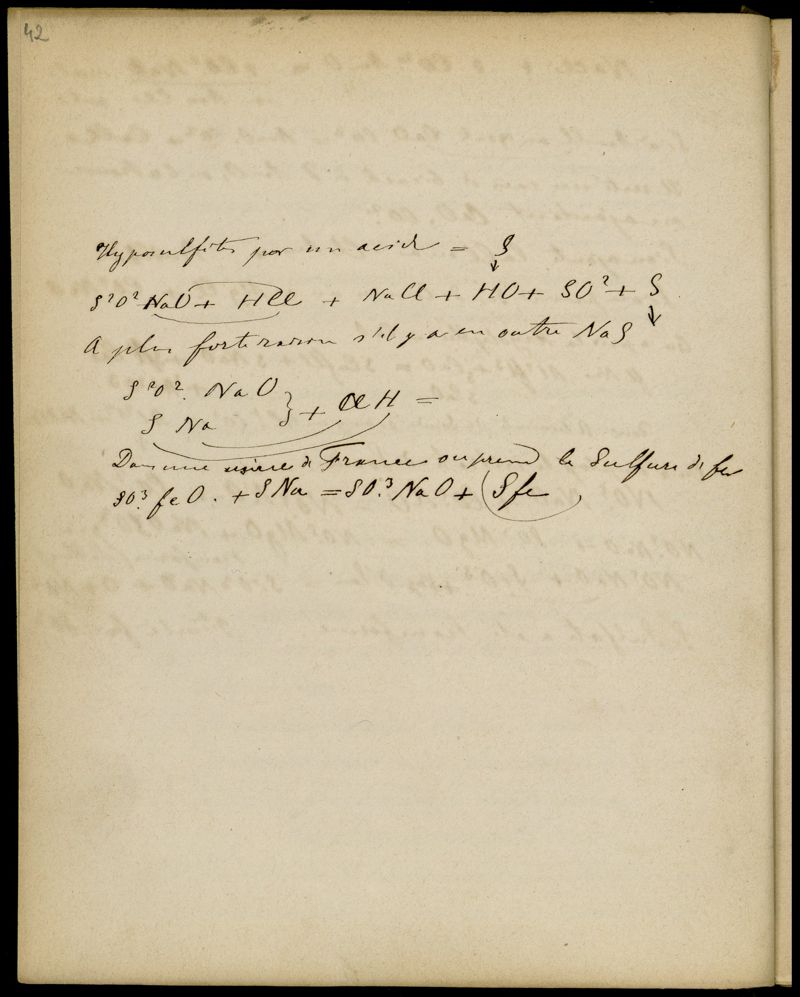 42
Hyposulfite par un acide = S
S²O² NaO + HCl + NaCl + HO + SO² + S
A plus forte raison s'il y a en outre NaS
S²O². NaO
S Na } + ClH =
Dans une usine de France on prend le Sulfure de fer
SO³. feO. + SNa = SO³. NaO + Sfe.